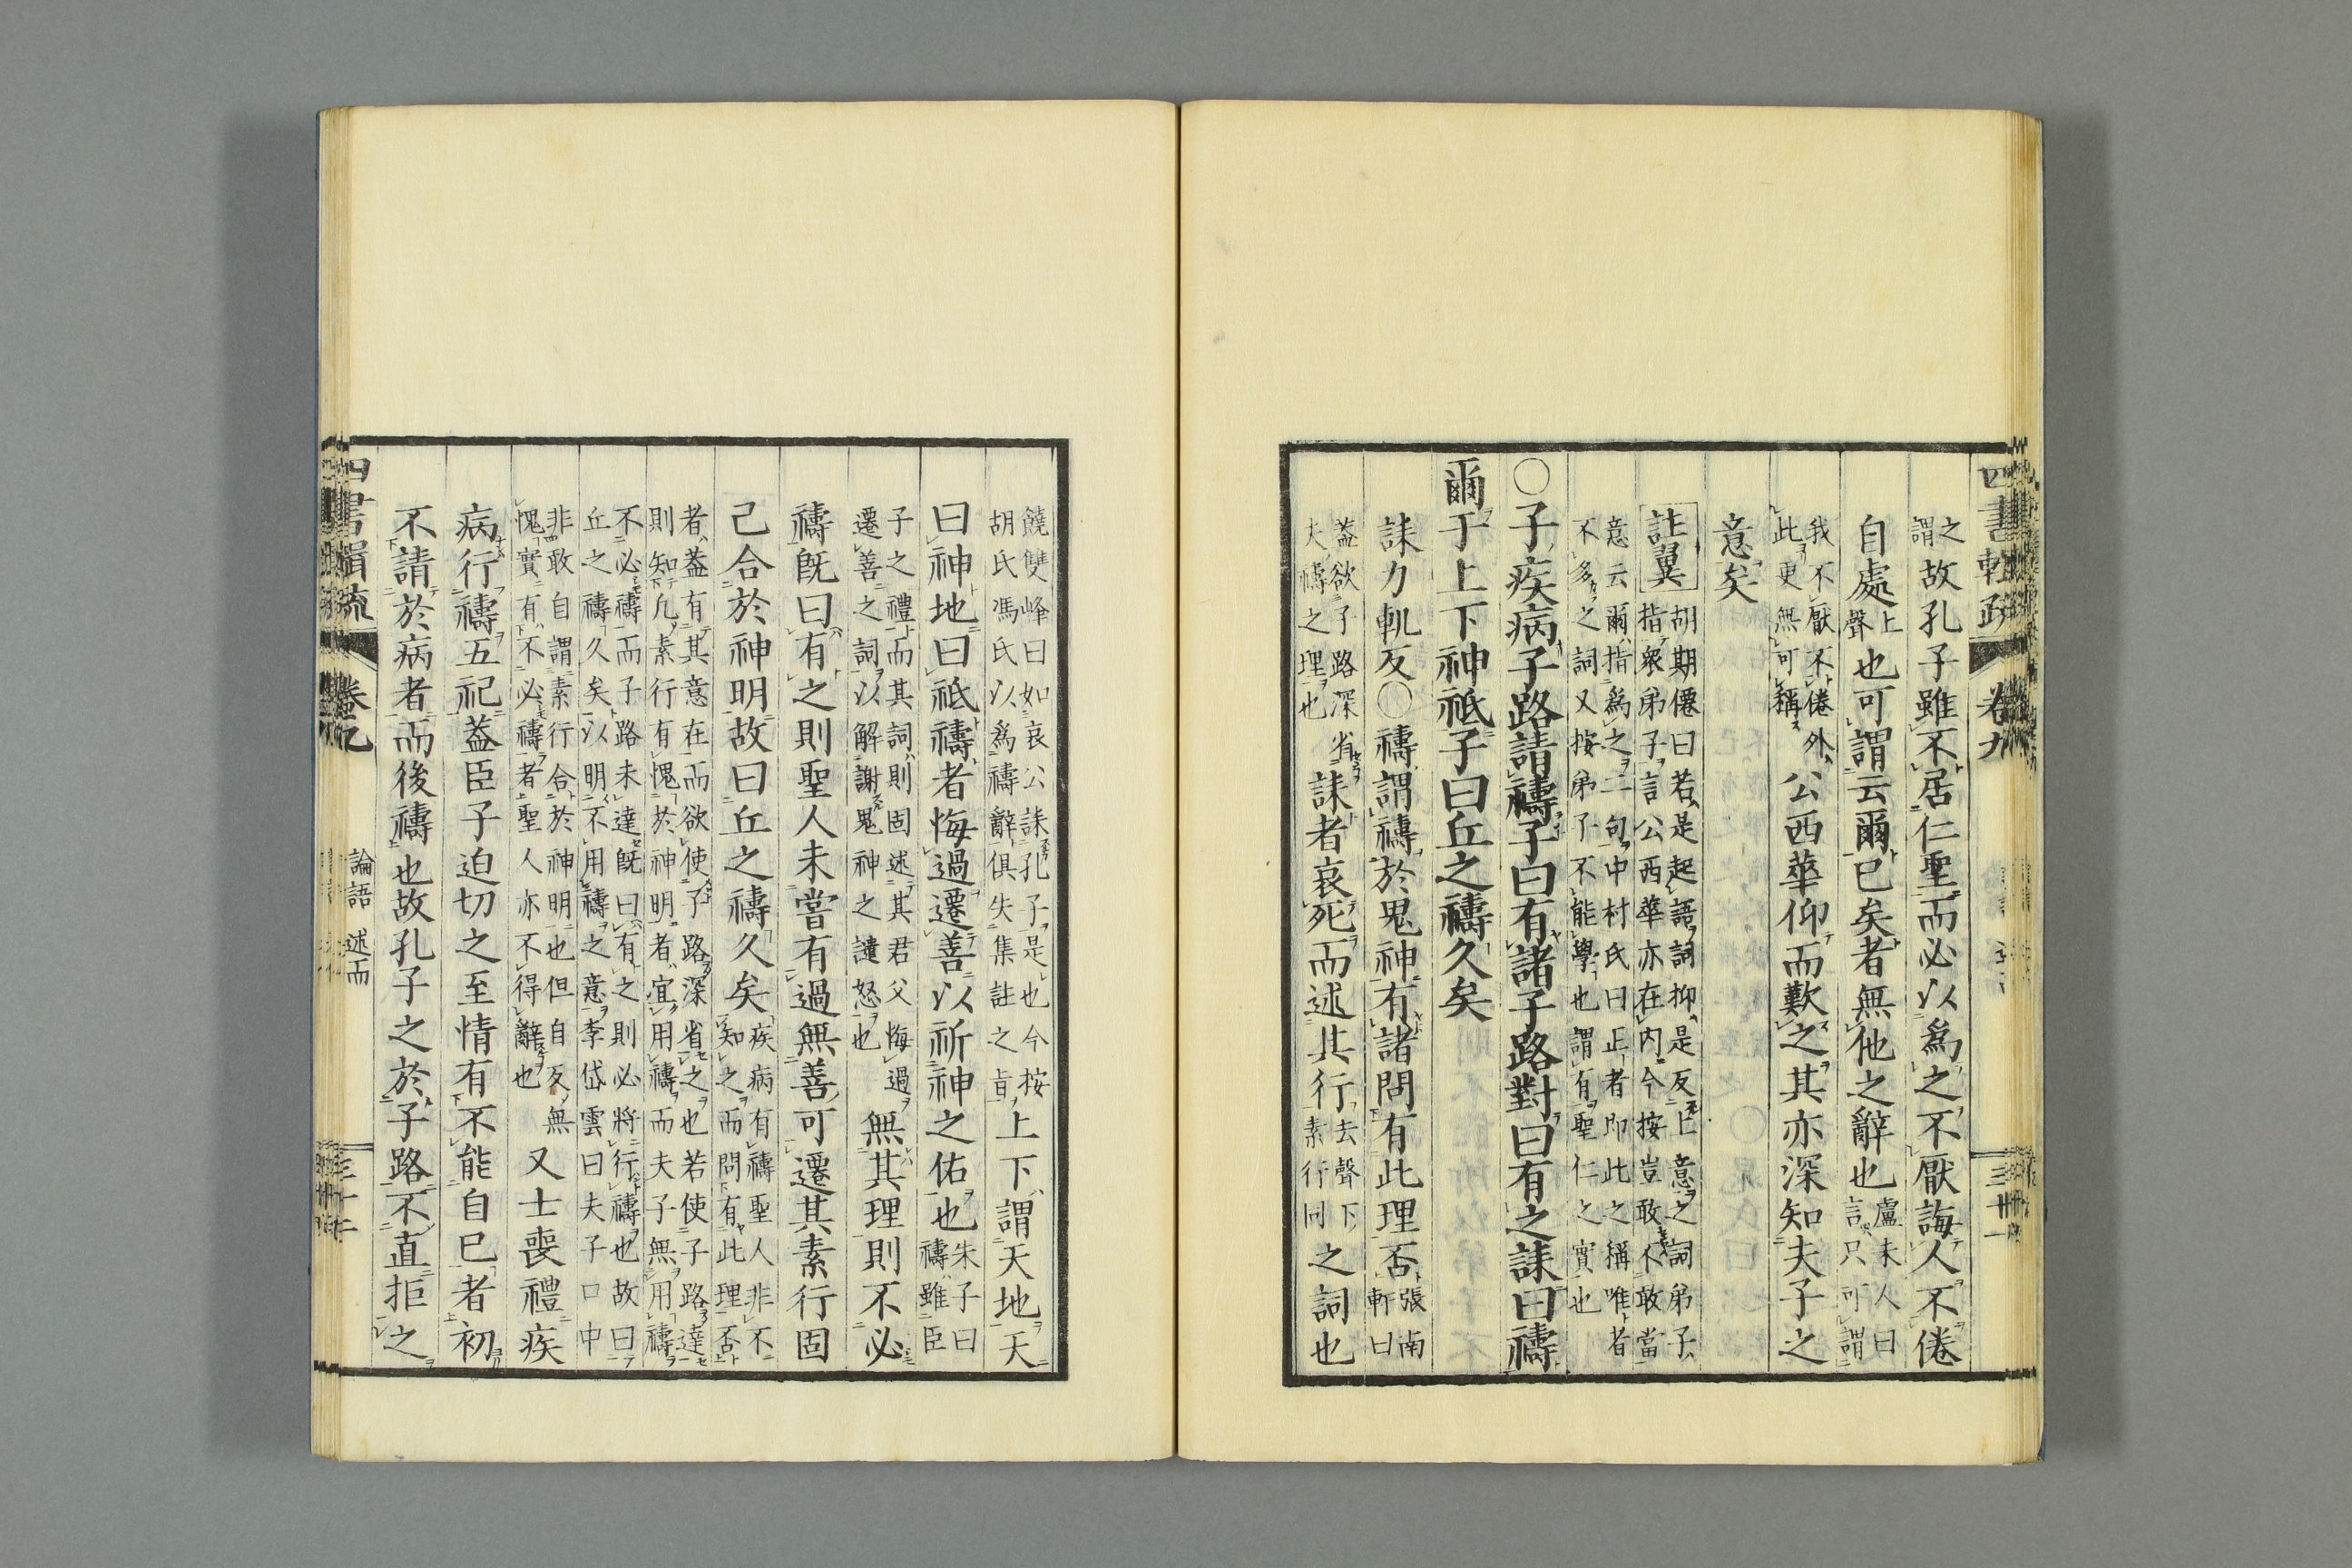 四書輯疏 卷九 三十一
之謂故孔子雖不居仁聖而必以爲之不厭誨人不倦
自處上聲也可謂云爾已矣者無他之辭也盧未人曰言只可謂
我不厭不倦外此更無可稱公西華仰而歎之其亦深知夫子之
意矣
註翼胡期僊曰若是起語詞抑是反上意之詞弟子指衆弟子言公西華亦在内今按豈敢不敢當
意云爾指爲之二句中村氏曰正者即此之稱唯者不多之詞又按弟子不能學也謂有聖仁之實也
○子疾病子路請禱子曰有諸子路對曰有之誄曰禱
爾于上下神祇子曰丘之禱久矣
誄力軌反○禱謂禱於鬼神有諸問有此理否張南軒曰
蓋欲子路深省夫禱之理也誄者哀死而述其行去聲下素行同之詞也
饒雙峰曰如哀公誄孔子是也今按胡氏馮氏以爲禱辭俱失集註之旨上下謂天地天
曰神地曰祇禱者悔過遷善以祈神之佑也朱子曰禱雖臣
子之禮而其詞則固述其君父悔過遷善之詞以解謝鬼神之譴怒也無其理則不必
禱旣曰有之則聖人未嘗有過無善可遷其素行固
己合於神明故曰丘之禱久矣疾病有禱聖人非不知之而問有此理否
者蓋有其意在而欲使子路深省之也若使子路達則知凡素行有愧於神明者宜用禱而夫子無用禱
不必禱而子路未達旣曰有之則必將行禱也故曰丘之禱久矣以明不用禱之意李岱雲曰夫子口中
非敢自謂素行合於神明也但自反無愧實有不必禱者聖人亦不得辭也又士喪禮疾
病行禱五祀蓋臣子迫切之至情有不能自已者初
不請於病者而後禱也故孔子之於子路不直拒之
四書輯疏 卷九 論語 述而 三十二